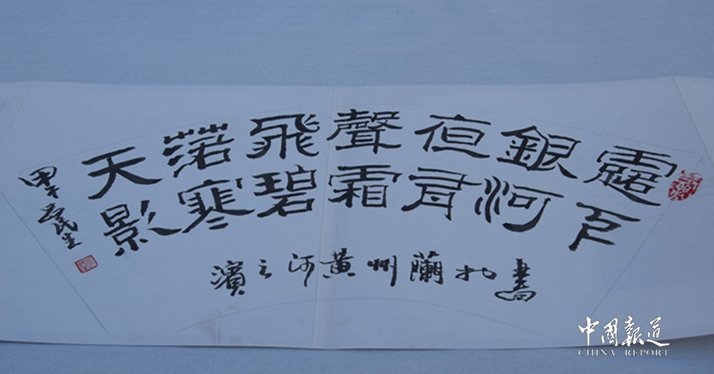 露下
銀河
夜有
聲霜
飛碧
落寒
天影
書於蘭州黃河之濱
甲午
中國報道
CHINA REPORT